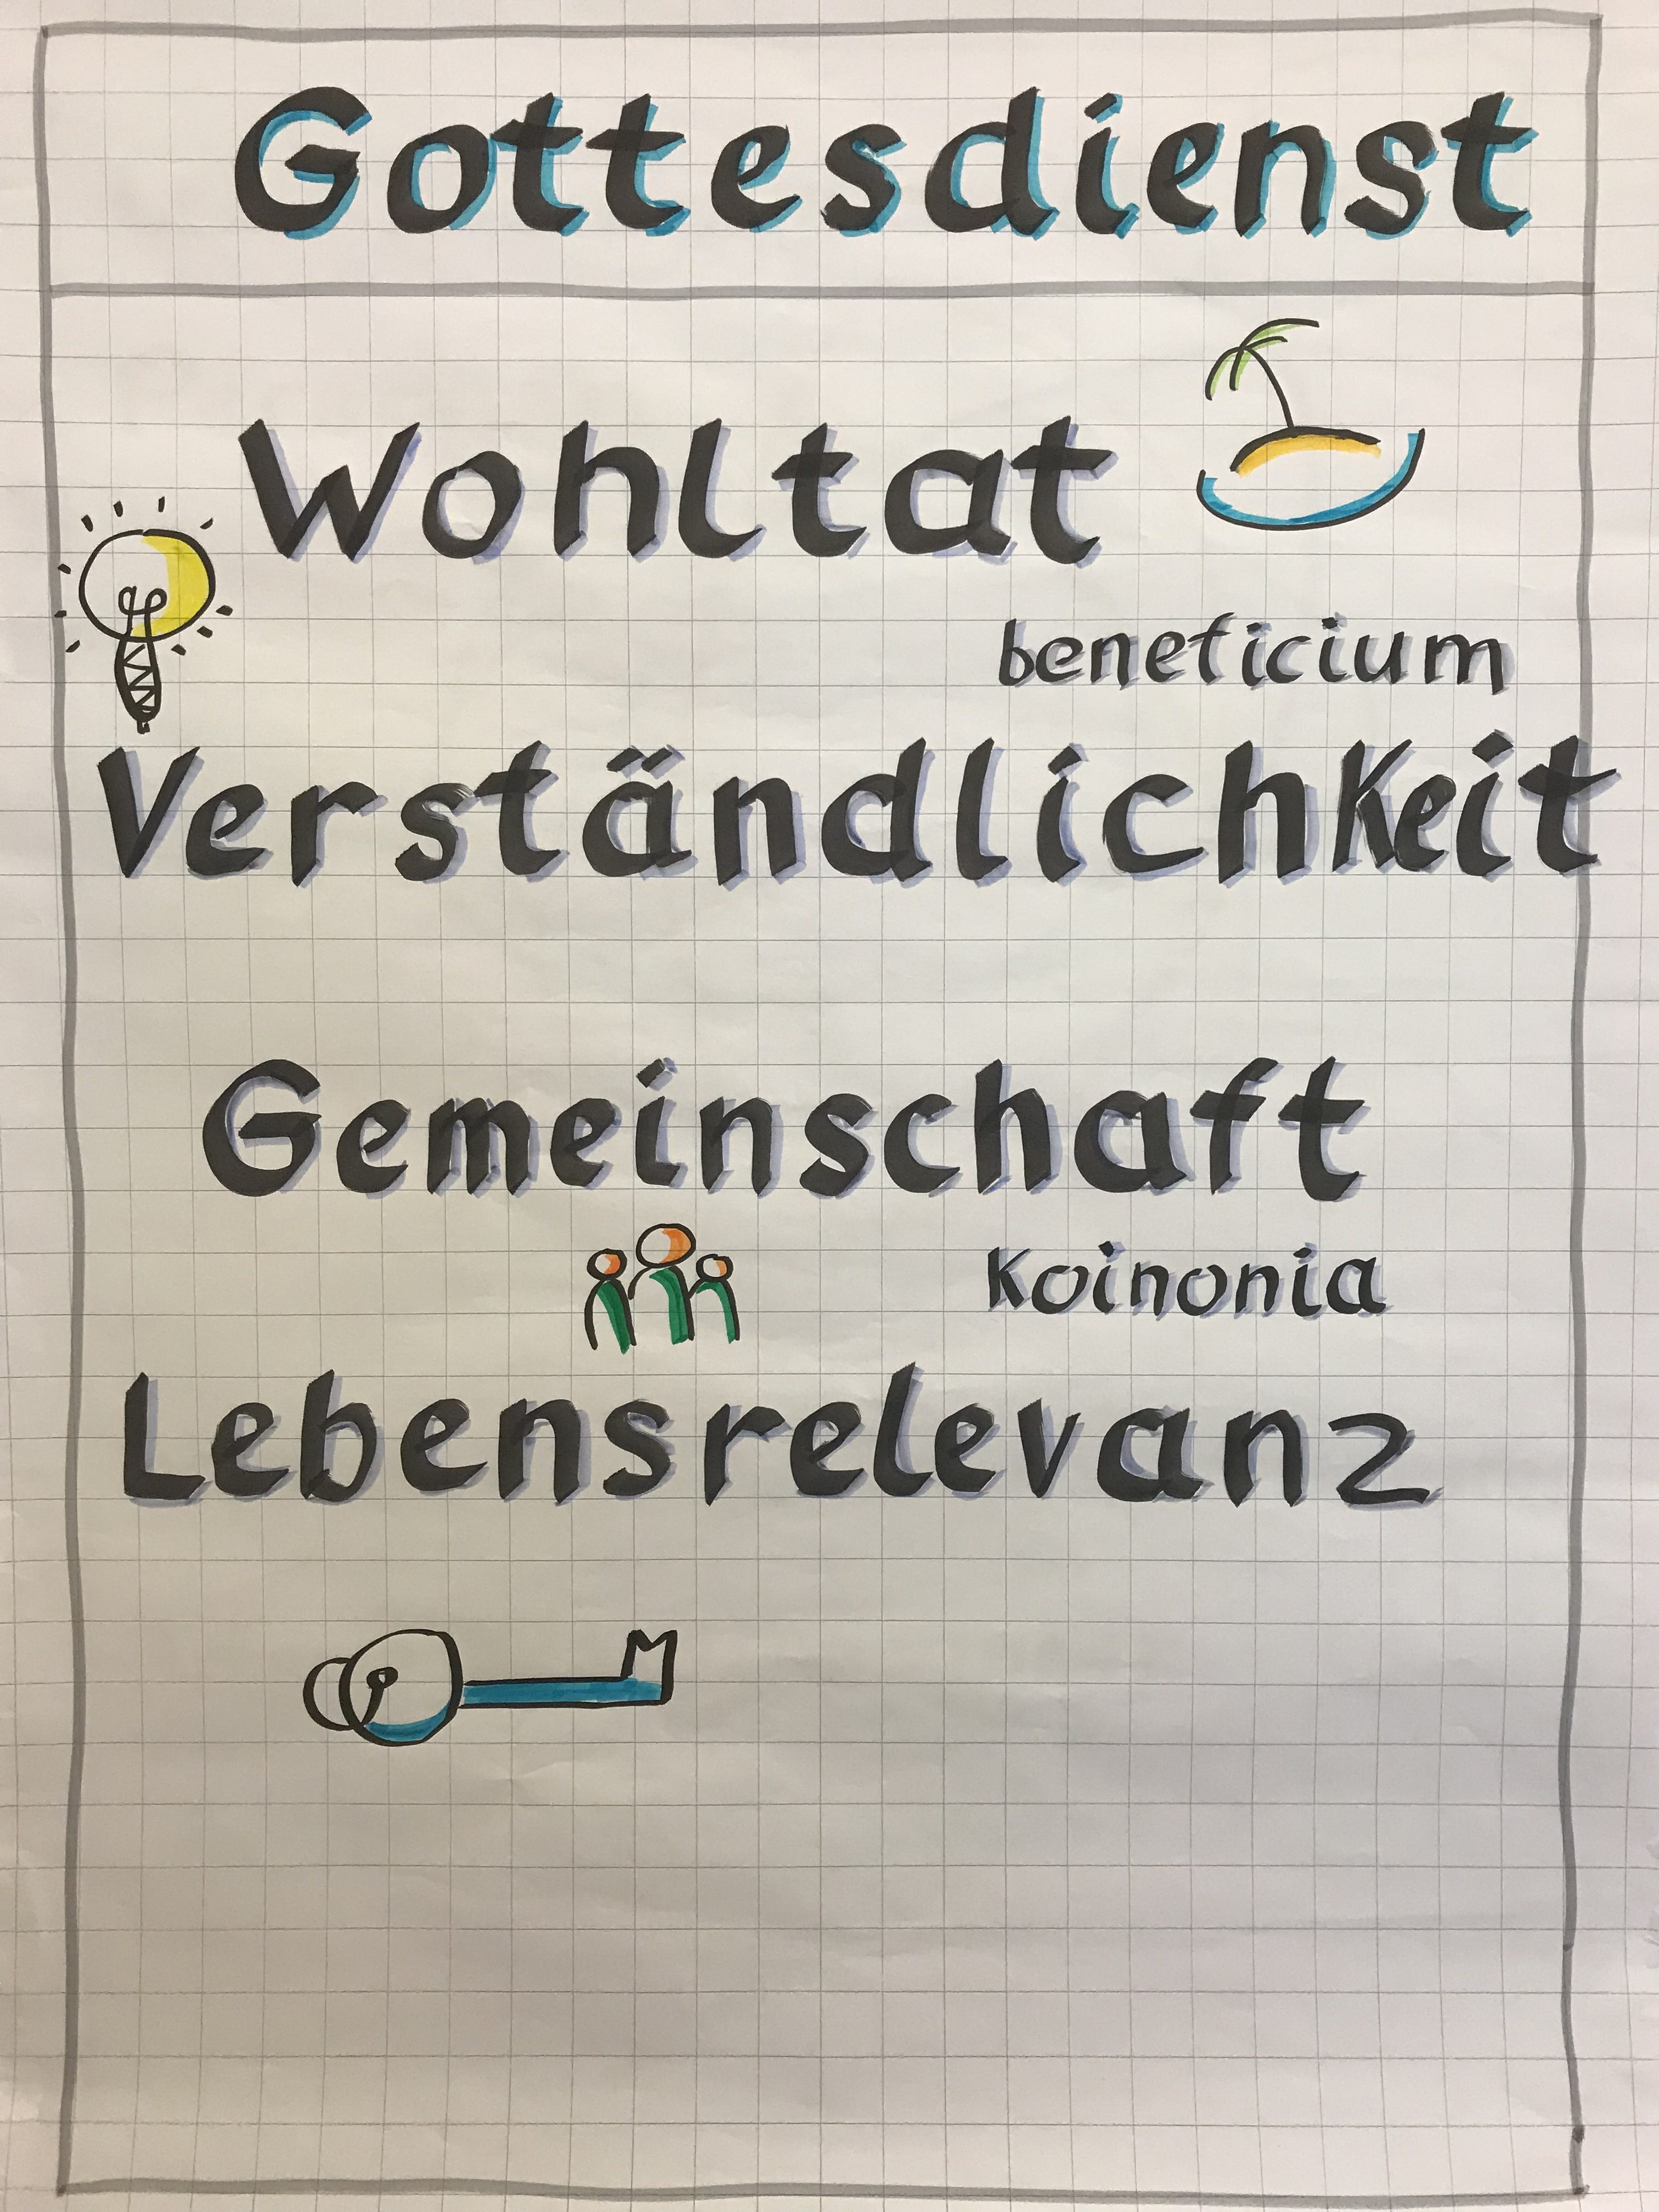 Gottesdienst
Wohltat
beneficium
Verständlichkeit
Gemeinschaft
Koinonia
Lebensrelevanz